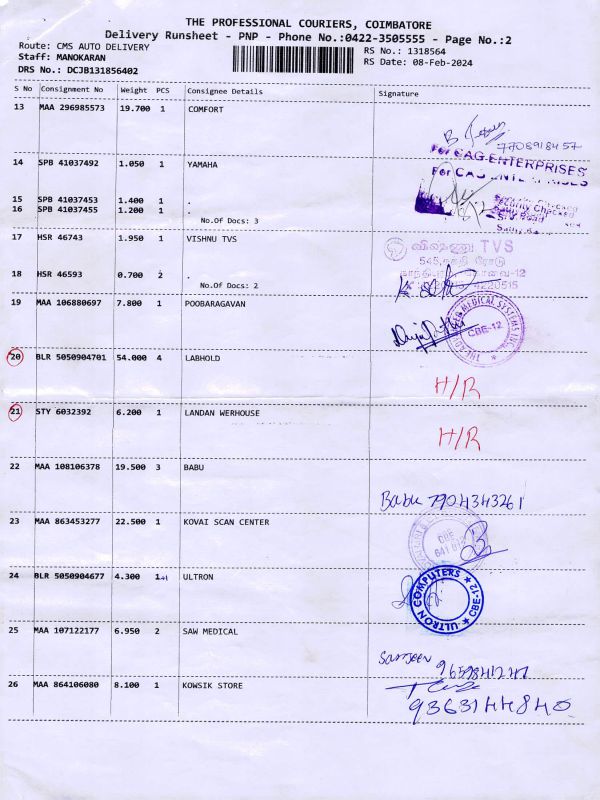 THE PROFESSIONAL COURIERS, COIMBATORE
Delivery Runsheet - PNP - Phone No.:0422-3505555 - Page No.:2
Route: CMS AUTO DELIVERY
RS No.: 1318564
Staff: MANOKARAN
RS Date: 08-Feb-2024
DRS No.: DCJB131856402
S No Consignment No Weight PCS Consignee Details Signature
13 MAA 296985573 19.700 1 COMFORT
7708918457
For CAG ENTERPRISES
14 SPB 41037492 1.050 1 YAMAHA
For CAG ENTERPRISES
15 SPB 41037453 1.400 1 .
Security Checked
16 SPB 41037455 1.200 1 .
No.Of Docs: 3
17 HSR 46743 1.950 1 VISHNU TVS
விஷ்ணு TVS
18 HSR 46593 0.700 2 .
No.Of Docs: 2
4220515
19 MAA 106880697 7.800 1 POOBARAGAVAN
MEDICAL SYSTEMS INC.
CBE-12
20 BLR 5050904701 54.000 4 LABHOLD
H/R
21 STY 6032392 6.200 1 LANDAN WERHOUSE
H/R
22 MAA 108106378 19.500 3 BABU
Babu 7904343261
23 MAA 863453277 22.500 1 KOVAI SCAN CENTER
CBE
641 012
24 BLR 5050904677 4.300 1 ULTRON
ULTRON COMPUTERS
CBE-12
25 MAA 107122177 6.950 2 SAW MEDICAL
26 MAA 864106080 8.100 1 KOWSIK STORE
9363144840